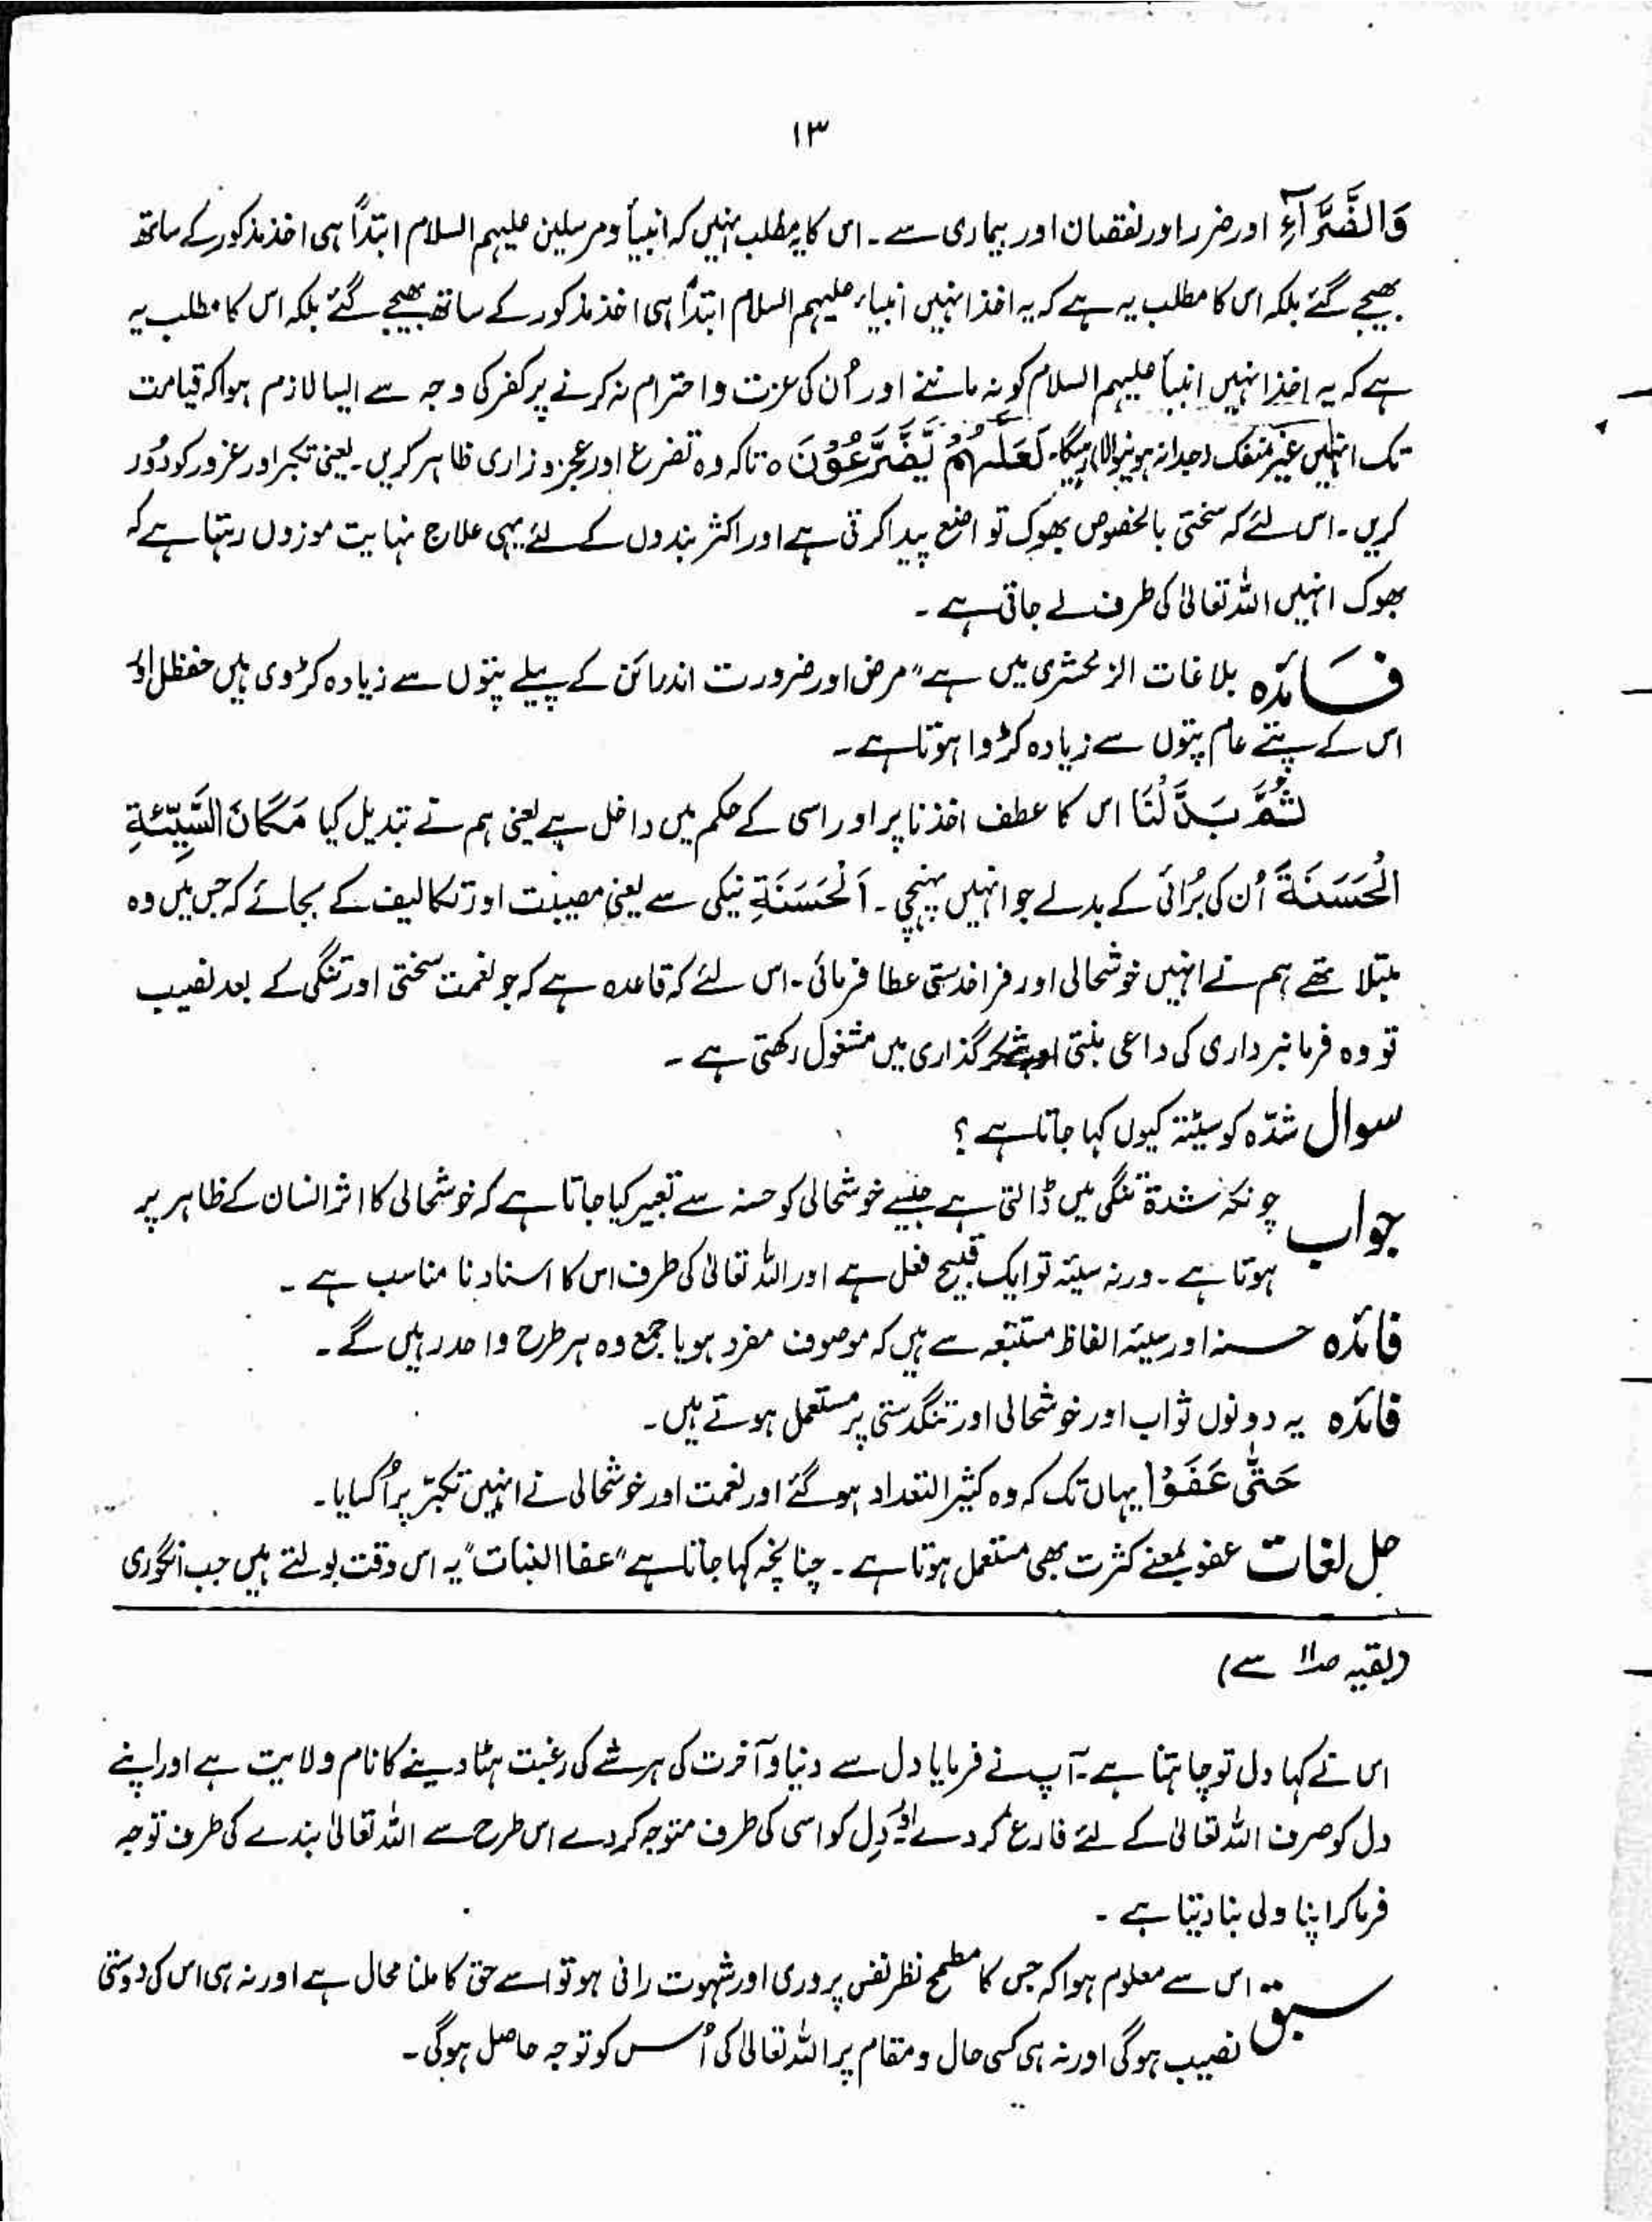 ۱۳
وَالضَّرَّآءِ اور ضرر اور نقصان اور بیماری سے۔ اس کا یہ مطلب نہیں کہ انبیأ و مرسلین علیہم السلام ابتداً ہی اخذ مذکور کے ساتھ
بھیجے گئے بلکہ اس کا مطلب یہ ہے کہ یہ اخذ انہیں انبیاء علیہم السلام ابتداً ہی اخذ مذکور کے ساتھ بھیجے گئے بلکہ اس کا مطلب یہ
ہے کہ یہ اخذ انہیں انبیأ علیہم السلام کو نہ ماننے اور اُن کی عزت و احترام نہ کرنے پر کفر کی وجہ سے ایسا لازم ہوا کہ قیامت
تک انہیں غیر منفک (جدا نہ ہونیوالا) رہیگا۔ لَعَلَّهُمْ يَضَّرَّعُوْنَ ہ تاکہ وہ تضرع اور عجز و زاری ظاہر کریں۔ یعنی تکبر اور غرور کو دُور
کریں۔ اس لئے کہ سختی بالخصوص بھوک تواضع پیدا کرتی ہے اور اکثر بندوں کے لئے یہی علاج نہایت موزوں رہتا ہے کہ
بھوک انہیں اللہ تعالیٰ کی طرف لے جاتی ہے۔
فائدہ بلاغات الزمخشری میں ہے "مرض اور ضرورت اندرائن کے پیلے پتوں سے زیادہ کڑوی ہیں حنظل اور
اس کے پتے عام پتوں سے زیادہ کڑوا ہوتا ہے۔
ثُمَّ بَدَّلْنَا اس کا عطف اخذنا پر اور اسی کے حکم میں داخل ہے یعنی ہم نے تبدیل کیا مَكَانَ السَّيِّئَةِ
الْحَسَنَةَ اُن کی بُرائی کے بدلے جو انہیں پہنچی۔ اَلْحَسَنَةِ نیکی سے یعنی مصیبت اور تکالیف کے بجائے کہ جس میں وہ
مبتلا تھے ہم نے انہیں خوشحالی اور فراخدستی عطا فرمائی۔ اس لئے کہ قاعدہ ہے کہ جو نعمت سختی اور تنگی کے بعد نصیب
تو وہ فرمانبرداری کی داعی بنتی اور شکر گذاری میں مشغول رکھتی ہے۔
سوال شدّہ کو سیئۃ کیوں کہا جاتا ہے؟
جواب چونکہ شدۃ تنگی میں ڈالتی ہے جیسے خوشحالی کو حسنہ سے تعبیر کیا جاتا ہے کہ خوشحالی کا اثر انسان کے ظاہر پر
ہوتا ہے۔ ورنہ سیئہ تو ایک قبیح فعل ہے اور اللہ تعالیٰ کی طرف اس کا اسناد نا مناسب ہے۔
فائدہ حسنہ اور سیئہ الفاظ مستتبعہ سے ہیں کہ موصوف مفرد ہو یا جمع وہ ہر طرح واحد رہیں گے۔
فائدہ یہ دونوں ثواب اور خوشحالی اور تنگدستی پر مستعمل ہوتے ہیں۔
حَتّٰى عَفَوْا یہاں تک کہ وہ کثیر التعداد ہو گئے اور نعمت اور خوشحالی نے انہیں تکبّر پر اُکسایا۔
حل لغات عفو بمعنے کثرت بھی مستعمل ہوتا ہے۔ چنانچہ کہا جاتا ہے "عفا النبات" یہ اس وقت بولتے ہیں جب انگوری
(بقیہ صـ۱۱ سے)
اس نے کہا دل تو چاہتا ہے۔ آپ نے فرمایا دل سے دنیا و آخرت کی ہر شے کی رغبت ہٹا دینے کا نام ولایت ہے اور اپنے
دل کو صرف اللہ تعالیٰ کے لئے فارغ کر دے اور دِل کو اسی کی طرف متوجہ کر دے اس طرح سے اللہ تعالیٰ بندے کی طرف توجہ
فرما کر اپنا ولی بنا دیتا ہے۔
سبق اس سے معلوم ہوا کہ جس کا مطمح نظر نفس پروری اور شہوت رانی ہو تو اسے حق کا ملنا محال ہے اور نہ ہی اس کی دوستی
نصیب ہوگی اور نہ ہی کسی حال و مقام پر اللہ تعالیٰ کی اُس کو توجہ حاصل ہوگی۔